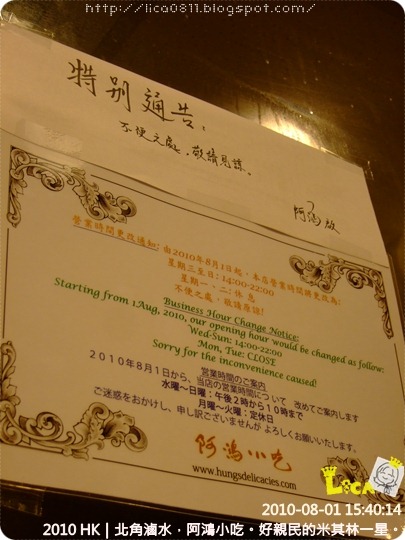 http://lica0811.blogspot.com
特别通告：
不便之處，敬請見諒。
阿鴻 啟
營業時間更改通知: 由2010年8月1日起，本店營業時間將更改為:
星期三至日: 14:00-22:00
星期一、二: 休息
不便之處，敬請原諒!
Business Hour Change Notice:
Starting from 1Aug, 2010, our opening hour would be changed as follow:
Wed-Sun: 14:00-22:00
Mon, Tue: CLOSE
Sorry for the inconvenience caused!
営業時間のご案内
2010年8月1日から、当店の営業時間について 改めてご案内します
水曜～日曜：午後2時から10時まで
月曜～火曜：定休日
ご迷惑をおかけし、申し訳ございませんが よろしくお願いいたします。
阿鴻小吃
www.hungsdelicacies.com
LiCA
2010-08-01 15:40:14
2010 HK | 北角滷水，阿鴻小吃。好親民的米其林一星。